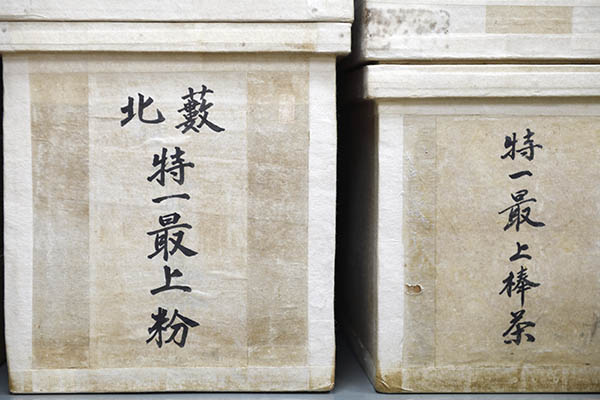 藪北
特一最上粉
特一最上棒茶